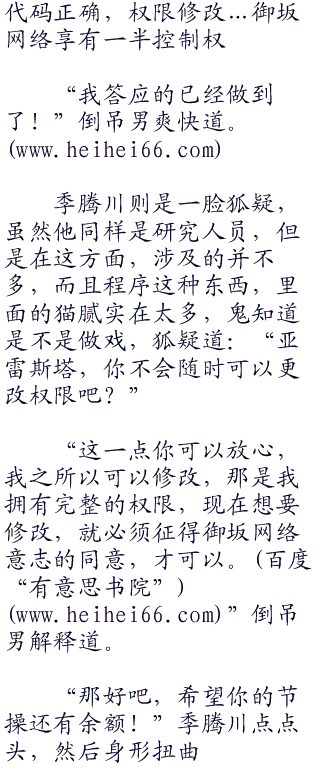 代码正确，权限修改…御坂
网络享有一半控制权
“我答应的已经做到
了！”倒吊男爽快道。
(www.heihei66.com)
季腾川则是一脸狐疑，
虽然他同样是研究人员，但
是在这方面，涉及的并不
多，而且程序这种东西，里
面的猫腻实在太多，鬼知道
是不是做戏，狐疑道：“亚
雷斯塔，你不会随时可以更
改权限吧？”
“这一点你可以放心，
我之所以可以修改，那是我
拥有完整的权限，现在想要
修改，就必须征得御坂网络
意志的同意，才可以。(百度
“有意思书院”)
(www.heihei66.com)”倒吊
男解释道。
“那好吧，希望你的节
操还有余额！”季腾川点点
头，然后身形扭曲